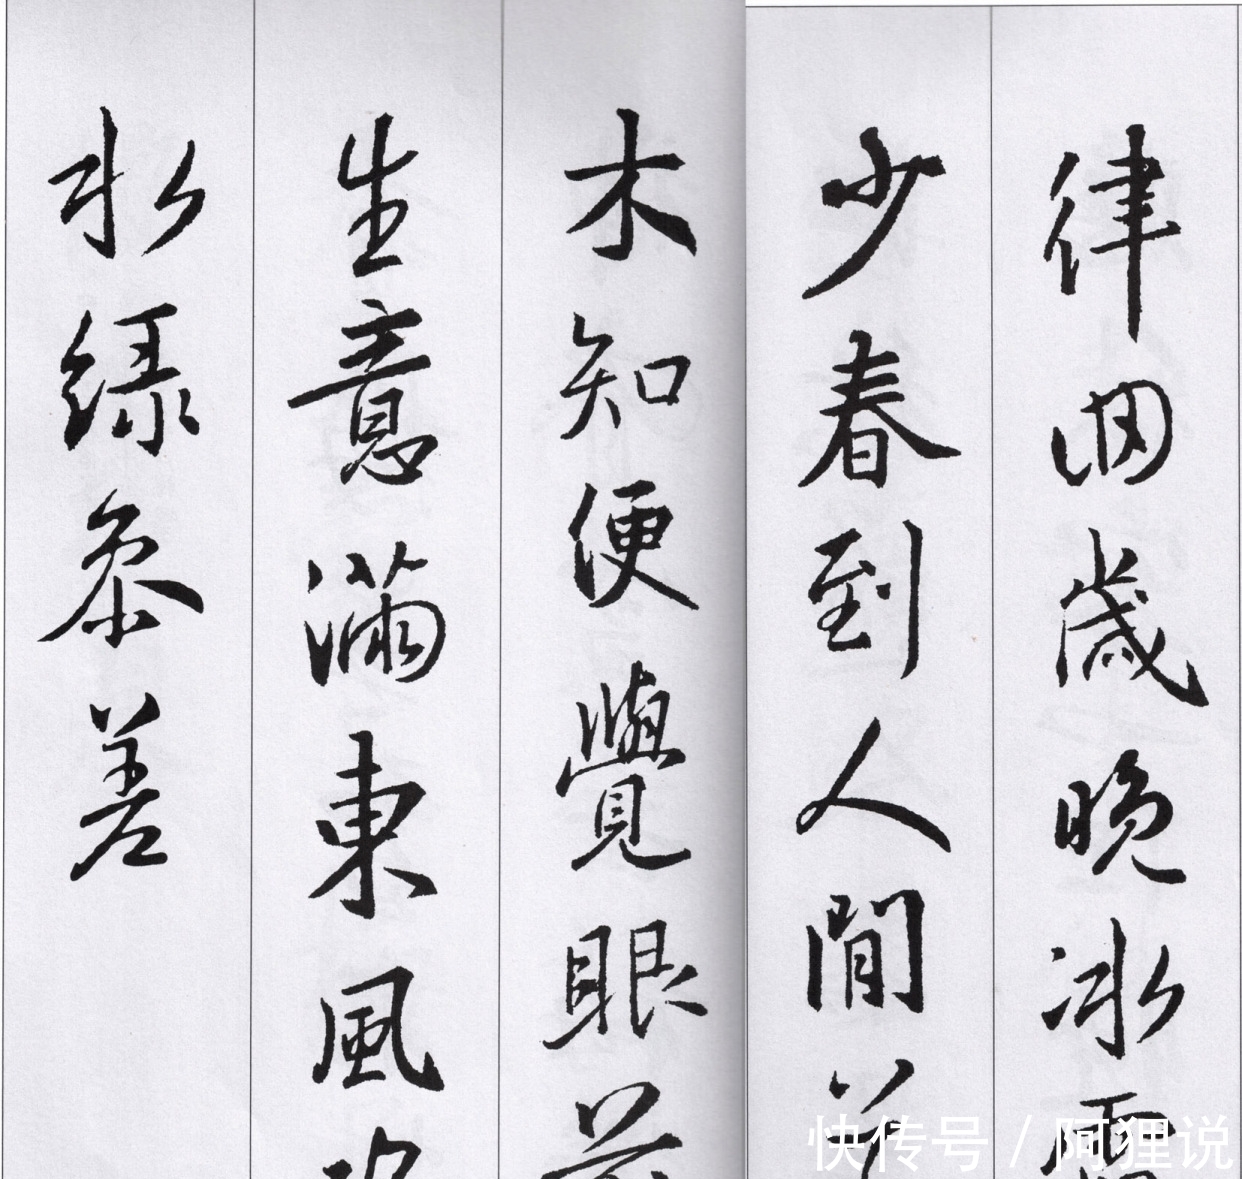 律回歲晚冰
少春到人間
木知便覺眼前
生意滿東風
水綠參差
快传号 / 阿狸说